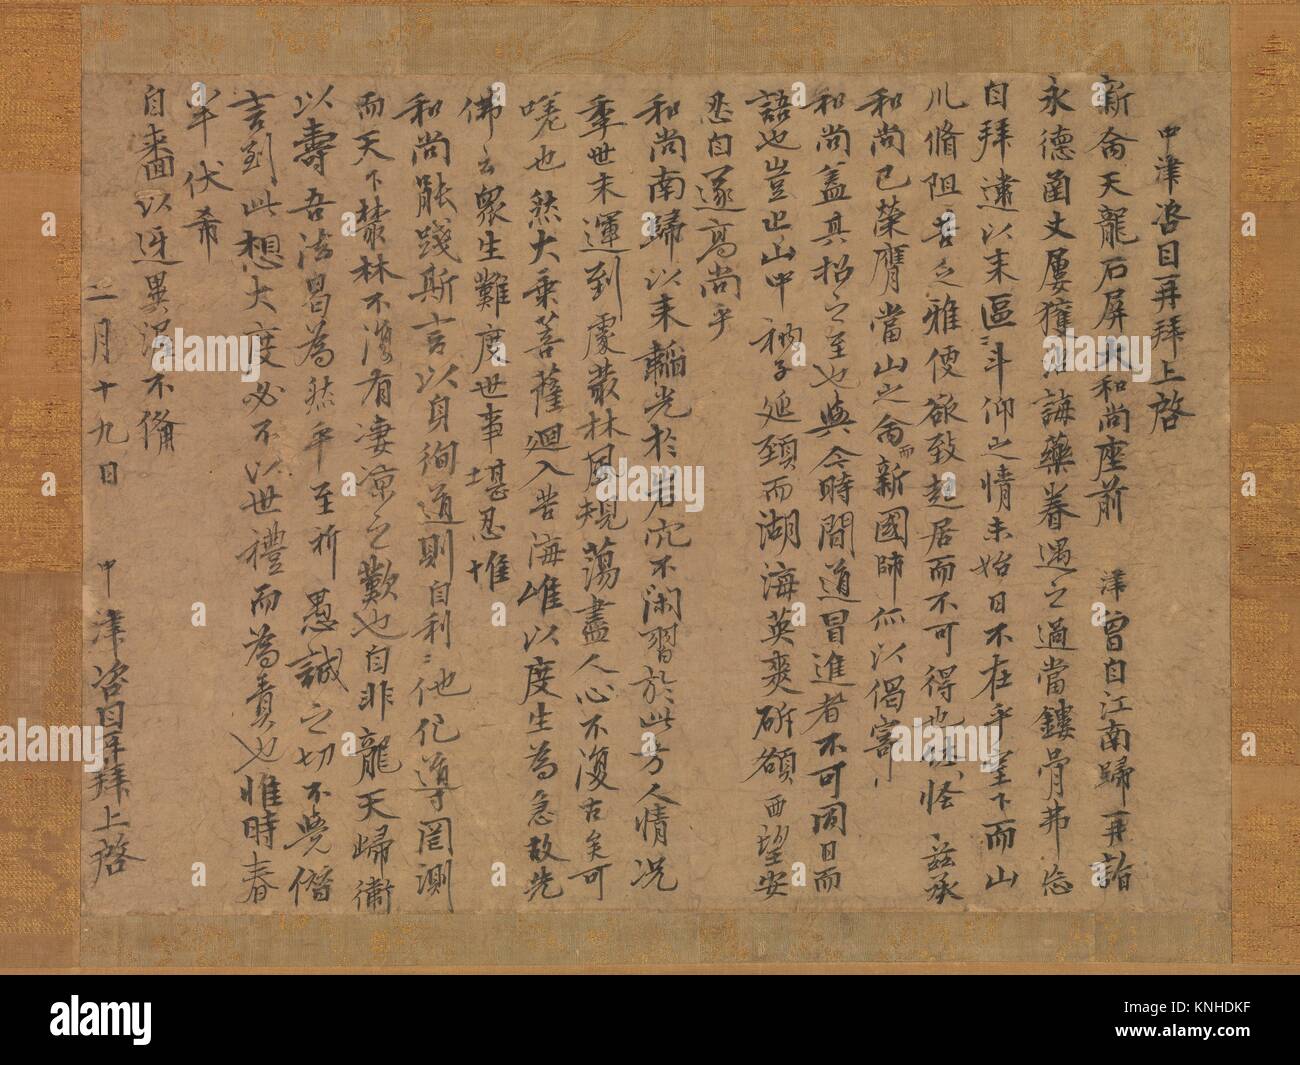 中津咨目再拜上啓
新命天龍石屏大和尚座前 津曾自江南歸再詣
永德函丈屢獲 誨藥眷遇之過當鏤骨弗忘
自拜違以来區〻斗仰之情未始日不在乎 下而山
川脩阻苦乏雅便欲致起居而不可得也 怪 茲承
和尚已榮膺當山之命而新國師 以偈寄
和尚盖其招之至也與今時間道冒進者不可同日而
語也豈止山中衲子延頸而湖海英爽 額西望安
忍自遂高尚乎
和尚南歸以来韜光於岩穴不閑習於此方人情况
季世末運到處叢林風規蕩盡人心不復古矣可
嗟也然大乘菩薩迴入苦海唯以度生為急故先
佛云衆生難度世事堪忍惟
和尚能踐斯言以身徇道則自利〻他化導罔測
而天下藂林不復有凄凉之歎也自非龍天歸衛
以壽吾法曷為然乎至祈愚誠之切不覺僭
言到此想大度必不以世禮而為責也惟時春
半伏希
自来面以迓異渥不備
二月十九日 中津咨目再拜上啓
alamy
a
KNHDKF
www.alamy.com